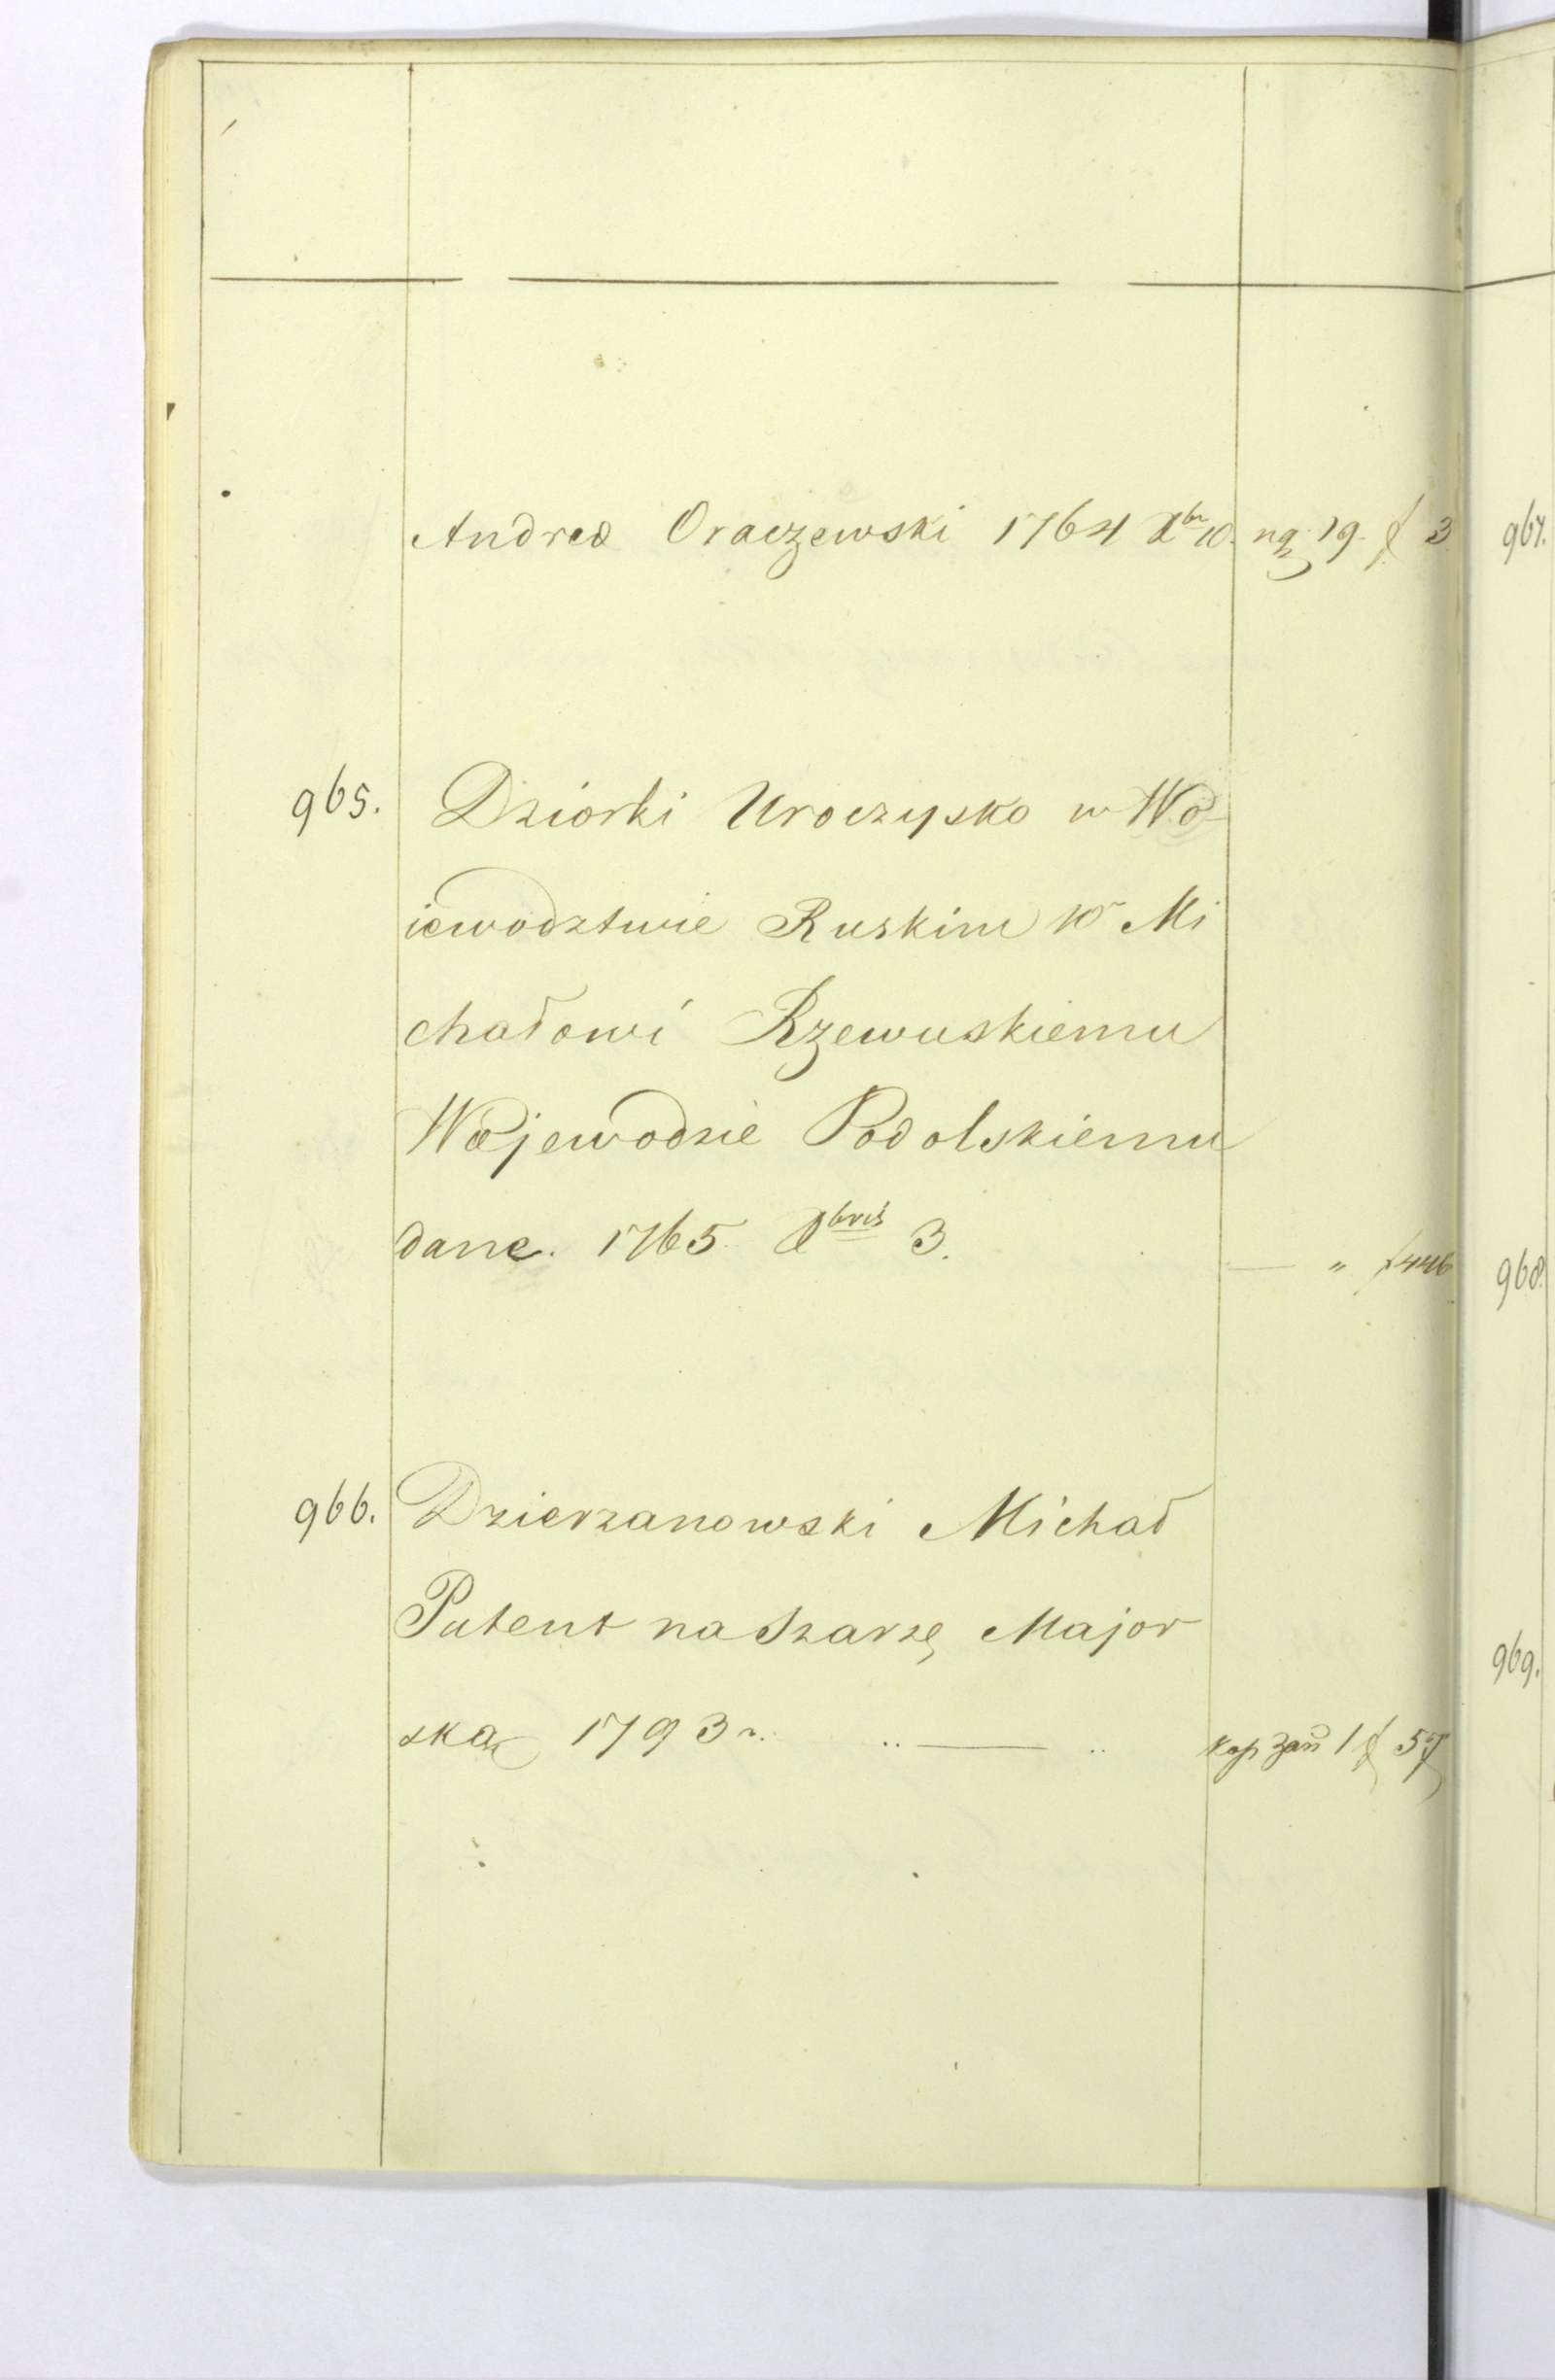 Andrea Oraczewski 1764 Xbr 10. ng 19. f 3
965. Dziorki Uroczysko w Wo-
iewodztwie Ruskim Wr Mi
chałowi Rzewuskiemu
Wojewodzie Podolskiemu
dane. 1765. Xbris 3. — " f 446
966. Dzierzanowski Michał
Patent na Szarzę Major
ską 1793 r. .. — .. kop zan 1 f 57
967.
968.
969.